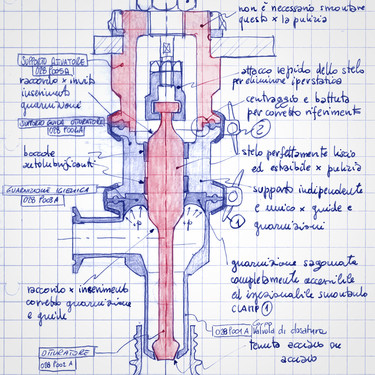 non è necessario smontare
questo x la pulizia
SUPPORTO ATTUATORE
02B P005A
raccordo x invito
inserimento
guarnizione
SUPPORTO GUIDA OTTURATORE
02B P006A
boccole
autolubrificanti
GUARNIZIONE IGIENICA
02B P003A
raccordo x inserimento
corretto guarnizione
e guide
OTTURATORE
02B P002A
attacco rapido dello stelo
per eliminare iperstatica
centraggio e battuta
per corretto riferimento
2
stelo perfettamente liscio
ed estraibile x pulizia
supporto indipendente
e unico x guide e
guarnizioni
guarnizione sagomata
completamente accessibile
ed ispezionabile smontando
CLAMP 1
02B P001A
Corpo
Valvola di dosatura
tenuta acciaio su
acciaio